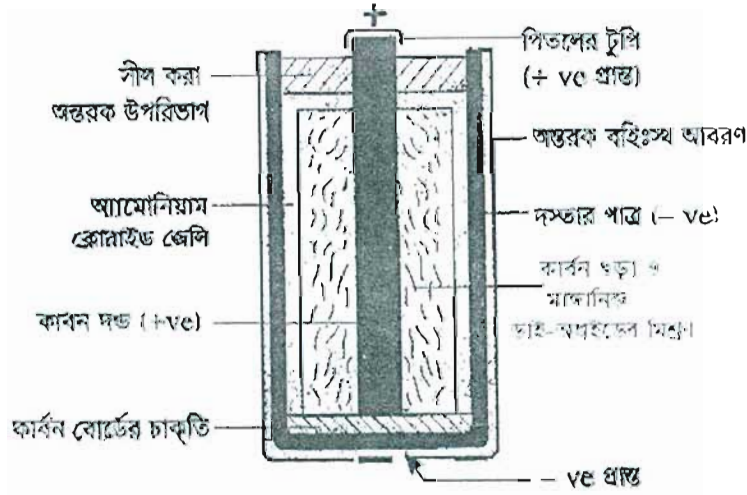 +
পিতলের টুপি
(+ ve প্রান্ত)
সীল করা
অন্তরক উপরিভাগ
অন্তরক বহিঃস্থ আবরণ
অ্যামোনিয়াম
ক্লোরাইড জেলি
দস্তার পাত্র (– ve)
কার্বন গুড়া ও
ডাই-অক্সাইডের মিশ্রণ
কাবন দন্ড (+ve)
কার্বন বোর্ডের চাকতি
– ve প্রান্ত